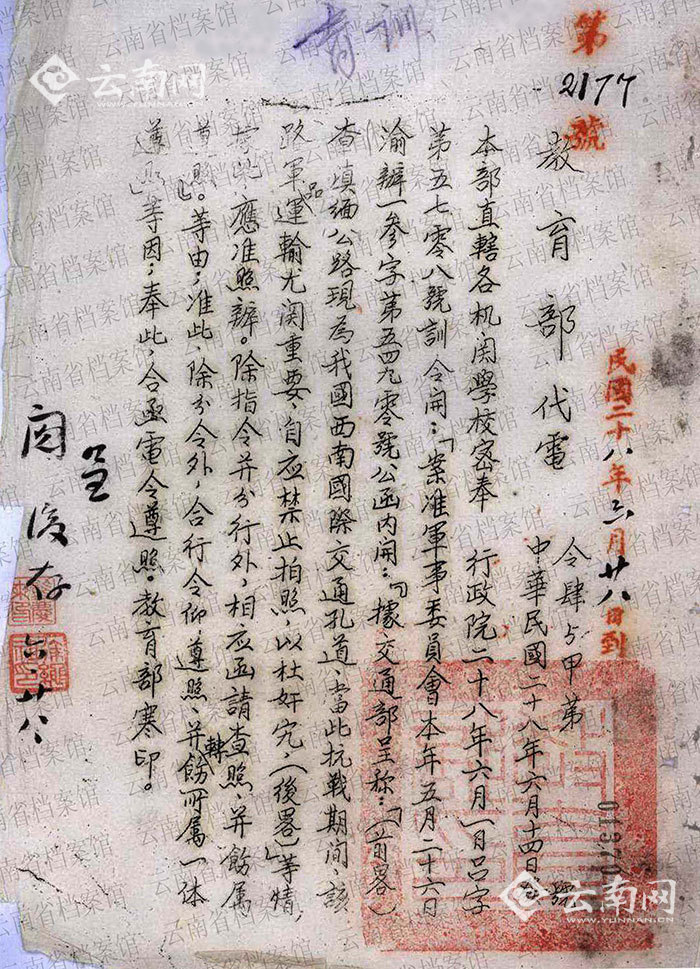 育訓
第
2177
號
教育部代電
民國二十八年六月廿八日到
令肆與甲第 號
中華民國二十八年六月十四日
01570
本部直轄各机関學校密奉 行政院二十八年六月一日呂字
第五七零八號訓令開：「案准軍事委員會本年五月二十六日
渝辦一參字第五四九零號公函内開：「據交通部呈称：「（前畧）
查滇緬公路現為我國西南國際交通孔道、當此抗戰期间、該
路軍品運輸尤関重要、自应禁止拍照、以杜奸宄、（後畧）」等情
據此、應准照辦。除指令并分行外、相应函請查照、并飭属
遵照」。等由；准此、除分令外、合行令仰遵照、并轉飭所属一体
遵照」等因；奉此、合亟電令遵照。教育部寒印。
呈
閱後存
六、廿八
云南网
云南网
WWW.YUNNAN.CN
云南省档案馆